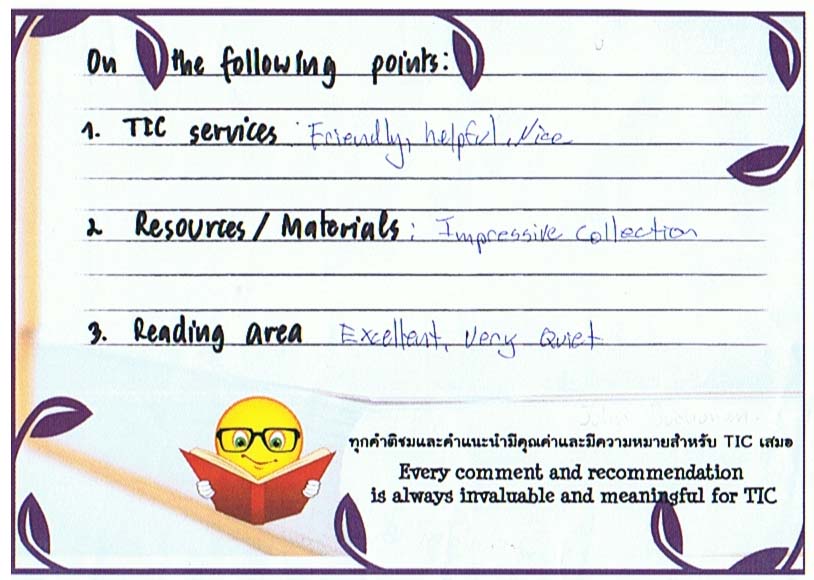 On the following points:
1. TIC services : Friendly, helpful, Nice
2 Resources / Materials : Impressive Collection
3. Reading area Excellent, Very Quiet
ทุกคำติชมและคำแนะนำมีคุณค่าและมีความหมายสำหรับ TIC เสมอ
Every comment and recommendation
is always invaluable and meaningful for TIC